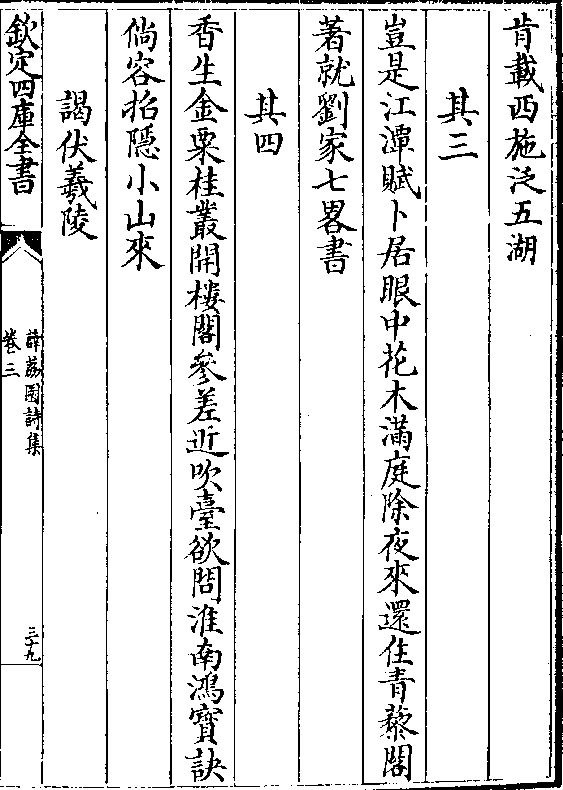 肯載西施泛五湖
其三
豈是江潭賦卜居眼中花木滿庭除夜來還住青藜閣
著就劉家七畧書
其四
香生金粟桂叢開樓閣參差近吹臺欲問淮南鴻寳訣
倘容招隱小山來
謁伏羲陵
欽定四庫全書
薜荔園詩集
卷三
三十九